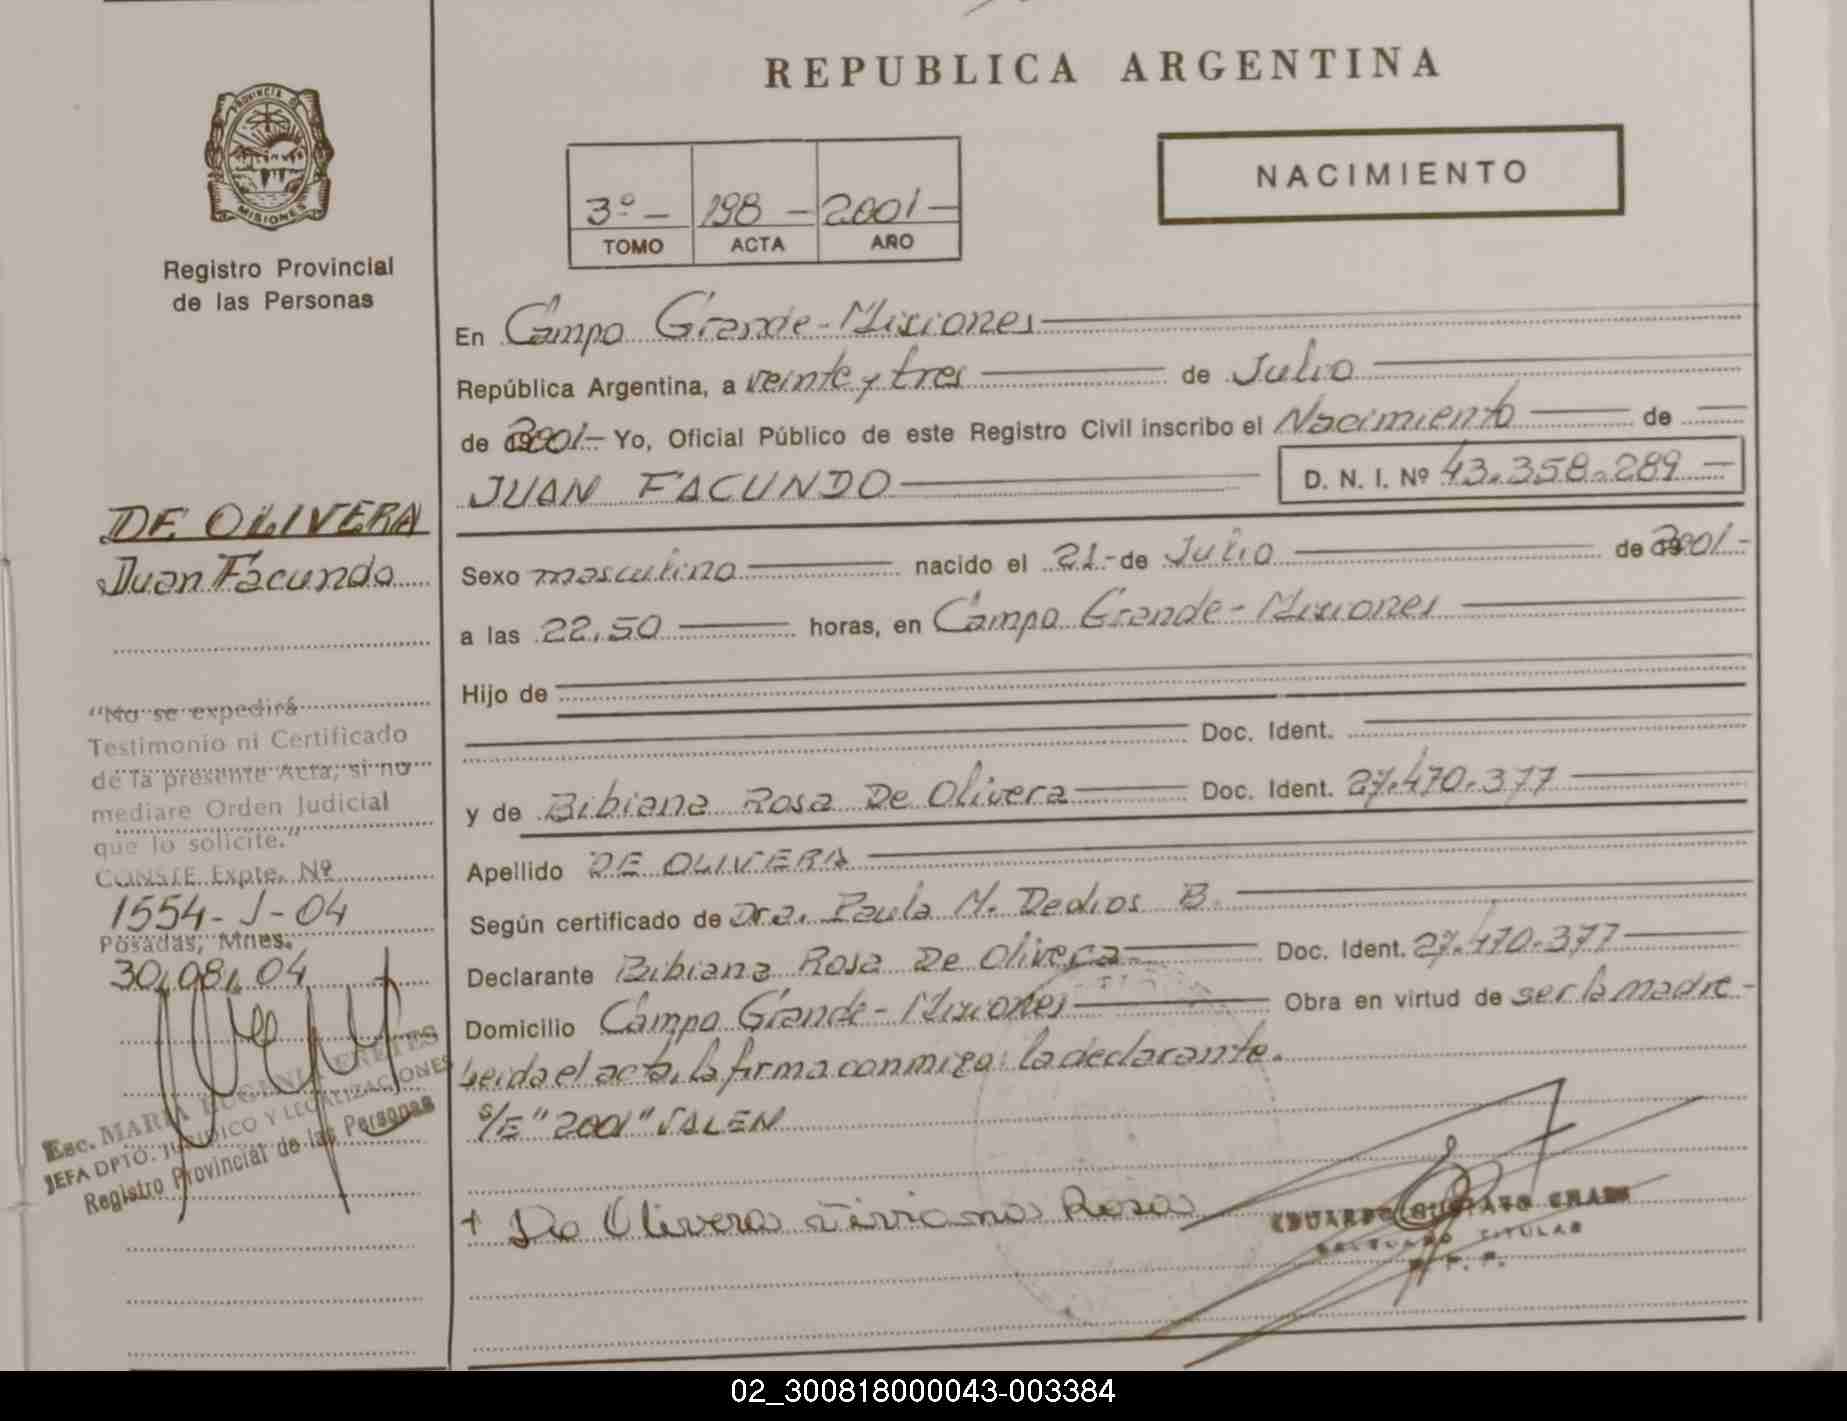 REPUBLICA ARGENTINA
PROVINCIA DE
MISIONES
Registro Provincial
de las Personas
3º - 198 - 2001 -
TOMO ACTA AÑO
NACIMIENTO
En Campo Grande - Misiones
República Argentina, a veinte y tres de Julio
de 2001 - Yo, Oficial Público de este Registro Civil inscribo el Nacimiento de
JUAN FACUNDO D. N. I. Nº 43.358.289 -
DE OLIVERA
Juan Facundo
Sexo masculino nacido el 21 - de Julio de 2001 -
a las 22,50 horas, en Campo Grande - Misiones
Hijo de
Doc. Ident.
y de Bibiana Rosa De Olivera Doc. Ident. 27.470.377
Apellido DE OLIVERA
Según certificado de Dra. Paula M. Dedios B.
Declarante Bibiana Rosa De Olivera Doc. Ident. 27.470.377
Domicilio Campo Grande - Misiones Obra en virtud de ser la madre -
Leida el acta, la firma conmigo: la declarante.
S/E "2001" SALEN
"No se expedirá
Testimonio ni Certificado
de la presente Acta, si no
mediare Orden Judicial
que lo solicite."
CONSTE Expte. Nº
1554 - J - 04
Posadas, Mnes.
30,08,04
Esc. MARIA EUGENIA
JEFA DPTO. JURIDICO Y LEGALIZACIONES
Registro Provincial de las Personas
+ De Olivera Viviana Rosa
EDUARDO GUSTAVO
DELEGADO TITULAR
02_300818000043-003384